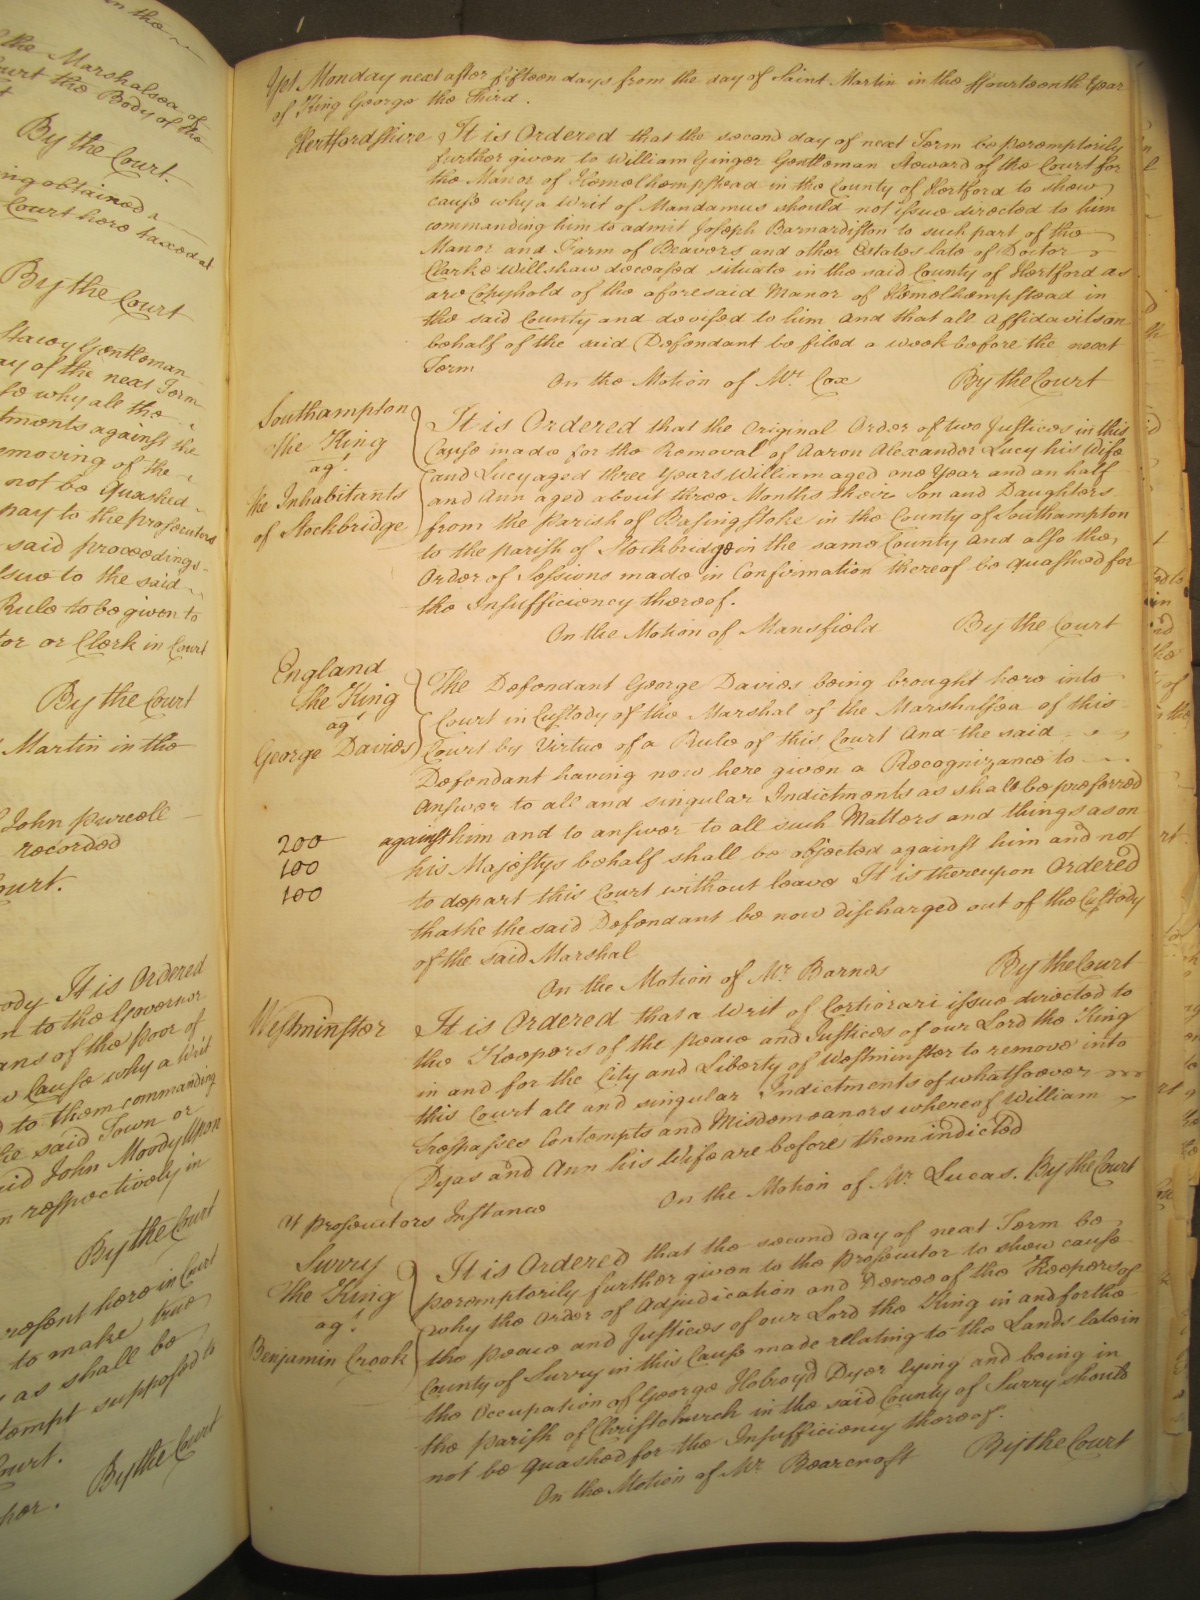 in the
the Marshalsea of
Court the Body of the
By the Court.
ing obtained a
Court here taxed at
By the Court
Stacey Gentleman
ay of the next Term
se why all the
tments against the
emoving of the
not be Quashed
pay to the prosecutors
said proceedings
Issue to the said
Rule to be given to
tor or Clerk in Court
By the Court
Martin in the
John purcell
recorded
Court.
ody It is Ordered
n to the Governor
ans of the Poor of
w Cause why a Writ
d to them commanding
he said Town or
aid John Moody upon
n respectively in
By the Court
resent here in Court
to make true
as shall be
tempt supposed to
Court.
By the Court
Yet Monday next after fifteen days from the day of Saint Martin in the ffourteenth Year
of King George the Third.
Hertfordshire It is Ordered that the second day of next Term be peremptorily
further given to William Ginger Gentleman Steward of the Court for
the Manor of Hemelhempstead in the County of Hertford to shew
cause why a Writ of Mandamus should not issue directed to him
commanding him to admit Joseph Barnardiston to such part of the
Manor and Farm of Beavers and other Estates late of Doctor
Clarke Willshaw deceased situate in the said County of Hertford as
are Copyhold of the aforesaid Manor of Hemelhempstead in
the said County and devised to him And that all Affidavits on
behalf of the said Defendant be filed a week before the next
Term
On the Motion of Mr. Cox By the Court
Southampton
The King
agt.
the Inhabitants
of Stockbridge
It is Ordered that the Original Order of two Justices in this
Cause made for the Removal of Aaron Alexander Lucy his Wife
and Lucy aged three Years William aged one Year and an half
and Ann aged about three Months their Son and Daughters
from the Parish of Basingstoke in the County of Southampton
to the parish of Stockbridge in the same County And also the
Order of Sessions made in Confirmation thereof be quashed for
the Insufficiency thereof.
On the Motion of Mansfield By the Court
England
The King
agt.
George Davies
The Defendant George Davies being brought here into
Court in Custody of the Marshal of the Marshalsea of this
Court by Virtue of a Rule of this Court And the said
Defendant having now here given a Recognizance to
Answer to all and singular Indictments as shall be preferred
200 against him and to answer to all such Matters and things as on
100 his Majestys behalf shall be objected against him and not
100 to depart this Court without leave It is thereupon Ordered
that he the said Defendant be now discharged out of the Custody
of the said Marshal
On the Motion of Mr. Barnes By the Court
Westminster It is Ordered that a Writ of Certiorari issue directed to
the Keepers of the peace and Justices of our Lord the King
in and for the City and Liberty of Westminster to remove into
this Court all and singular Indictments of whatsoever
Trespasses Contempts and Misdemeanors whereof William
Dyas and Ann his Wife are before them indicted
On the Motion of Mr. Lucas. By the Court
At prosecutors Instance
Surry
The King
agt.
Benjamin Crook
It is Ordered that the second day of next Term be
peremptorily further given to the prosecutor to show cause
why the Order of Adjudication and Decree of the Keepers of
the peace and Justices of our Lord the King in and for the
County of Surry in this Cause made relating to the Lands late in
the Occupation of George Hobroyd Dyer lying and being in
the parish of Christchurch in the said County of Surry should
not be quashed for the Insufficiency thereof.
On the Motion of Mr Bearcroft By the Court